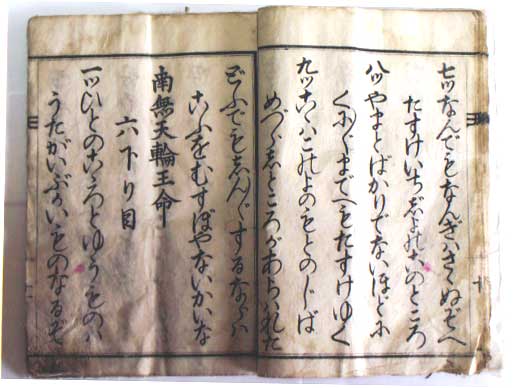 七ツなんでもなんぎハさゝぬぞへ
たすけいちじよのこのところ
八ツやまとばかりでないほどに
くにぐにまでへもたすけゆく
九ツこゝハこのよのもとのじば
めづらしところがあらハれた
どふでもしんじんするならハ
こふをむすぼやないかいな
南無天輪王命
六下り目
一ツひとのこゝろとゆうものハ
うたがいぶかいものなるぞ